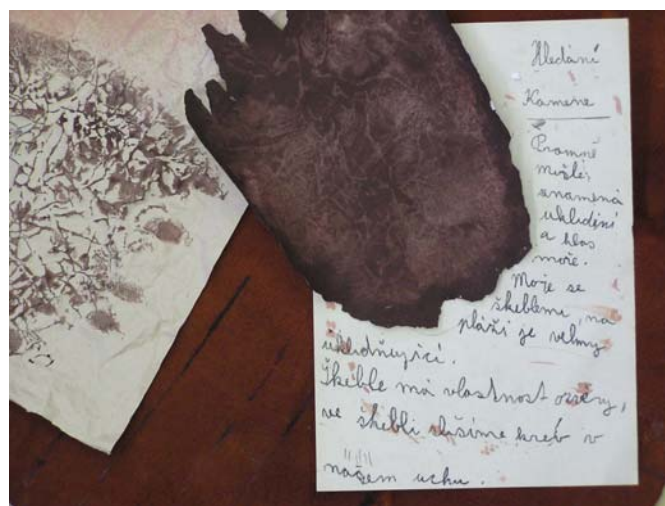 Hledání
Kamene
Promně
mušle,
znamená
uklidění
a hlas
moře.
Moje se
škeblemi, na
pláži je velmy
uklidňující.
Škeble má vlastnost ozvěny,
ve škebli slišíme krev v
našem uchu.